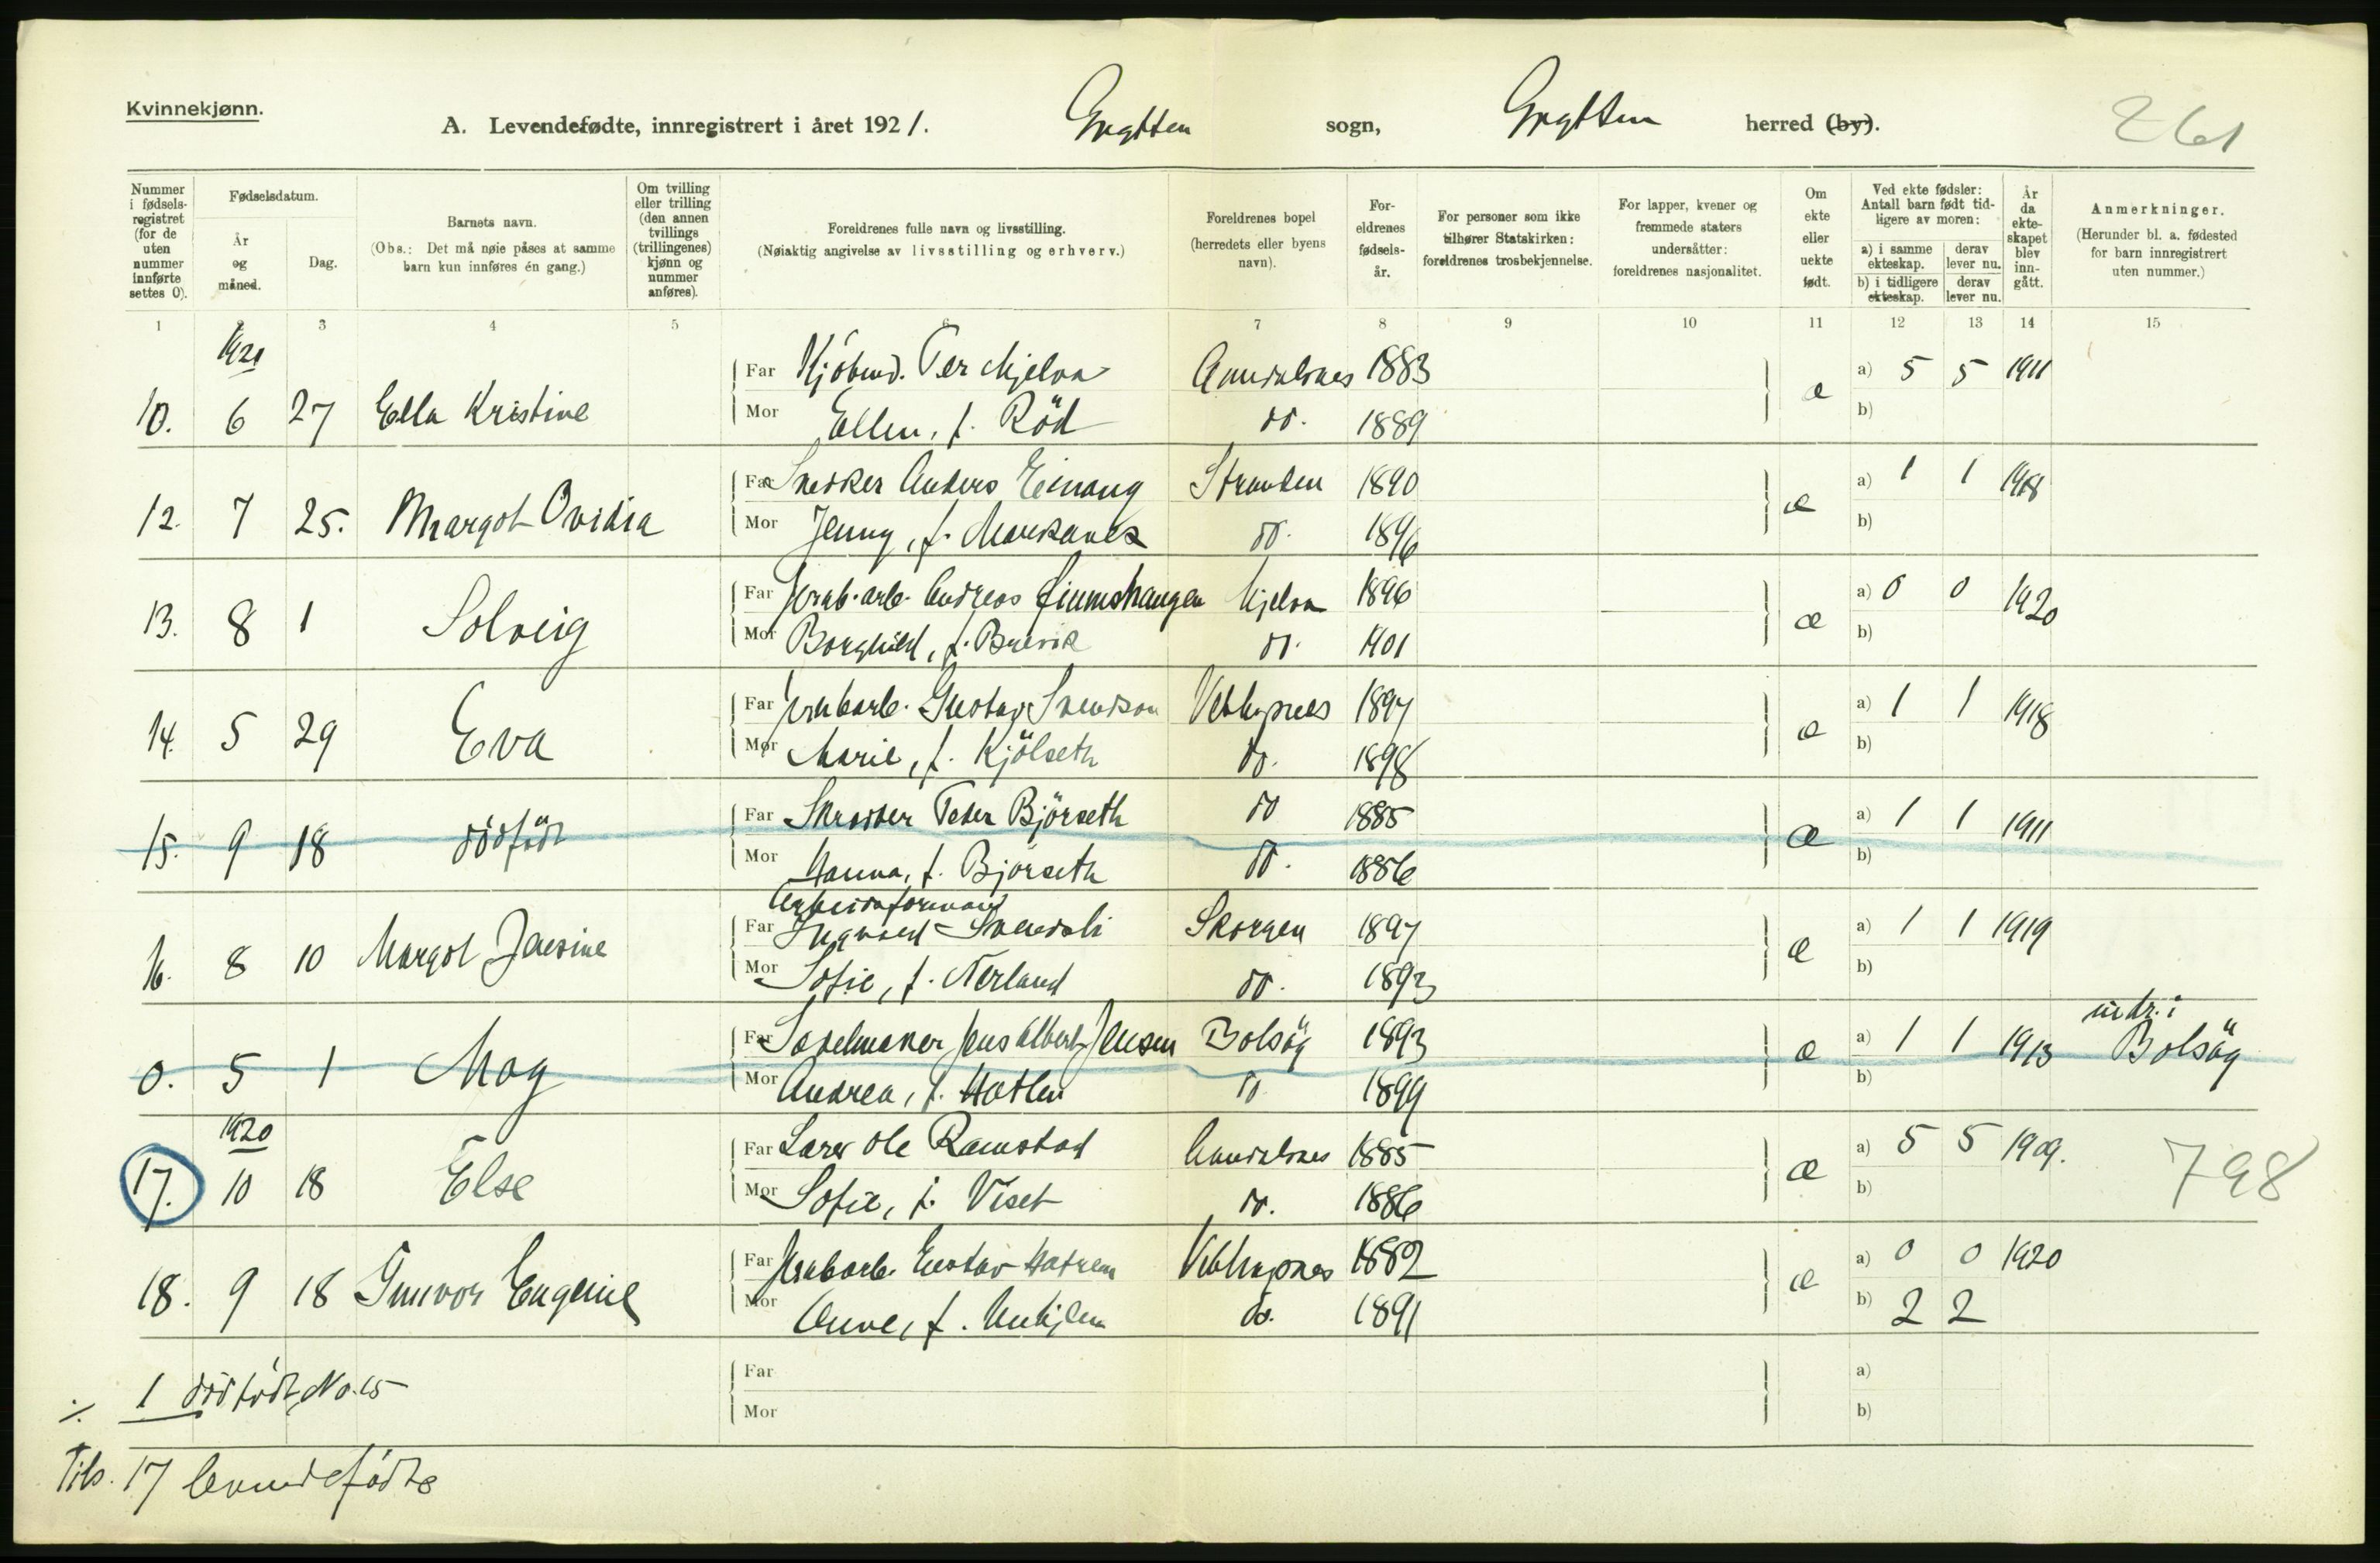 Kvinnekjønn.
A. Levendefødte, innregistrert i året 1921. Grytten sogn, Grytten herred (by).
261
Nummer i fødselsregistret (for de uten nummer innførte settes 0).
Fødselsdatum.
År og måned.
Dag.
Barnets navn.
(Obs.: Det må nøie påses at samme barn kun innføres én gang.)
Om tvilling eller trilling (den annen tvillings (trillingenes) kjønn og nummer anføres).
Foreldrenes fulle navn og livsstilling.
(Nøiaktig angivelse av livsstilling og erhverv.)
Foreldrenes bopel (herredets eller byens navn).
Foreldrenes fødselsår.
For personer som ikke tilhører Statskirken: foreldrenes trosbekjennelse.
For lapper, kvener og fremmede staters undersåtter: foreldrenes nasjonalitet.
Om ekte eller uekte født.
Ved ekte fødsler: Antall barn født tidligere av moren:
a) i samme ekteskap. derav lever nu.
b) i tidligere ekteskap. derav lever nu.
År da ekteskapet blev inngått.
Anmerkninger.
(Herunder bl. a. fødested for barn innregistrert uten nummer.)
1 2 3 4 5 6 7 8 9 10 11 12 13 14 15
1920
Far Kjøbmd. Per Mjelva Aandalsnes 1883 a) 5 5 1911
10. 6 27 Ella Kristine æ
Mor Ellen, f. Röd do. 1889 b)
Far Snekker Anders Einang Stranden 1890 a) 1 1 1918
12. 7 25. Margot Ovidia æ
Mor Jenny, f. do. 1896 b)
Far Jernb.arb. Andreas Mjelva 1896 a) 0 0 1920
13. 8 1 Solveig æ
Mor Borghild, f. Brevik do. 1901 b)
Far Jernbarb. Gustav Svendson Veblungsnes 1897 a) 1 1 1918
14. 5 29 Eva æ
Mor Marie, f. Kjölseth do. 1898 b)
Far Skredder Peder Björseth do 1885 a) 1 1 1911
15. 9 18 dödfödt æ
Mor Hanna, f. Björseth do. 1886 b)
Arbeidsformand
Far Ingvald Svendsli Skorgen 1897 a) 1 1 1919
16. 8 10 Margot Jensine æ
Mor Sofie, f. Nerland do. 1893 b)
indr. i
Far Sadelmaker Jens Albert Jensen Bolsöy 1893 a) 1 1 1913 Bolsöy
0. 5 1 May æ
Mor Andrea, f. Hatlen do 1899 b)
1920
Far Lærer Ole Ramstad Aandalsnes 1885 a) 5 5 1909.
17. 10 18 Else æ 798
Mor Sofie, f. Viset do. 1886 b)
Far Jernbarb. Gustav Hatrem Veblungsnes 1882 a) 0 0 1920
18. 9 18 Gunvor Eugenie æ
Mor Anne, f. Unhjem do. 1891 b) 2 2
Far a)
÷ 1 dödfödt, No. 15
Mor b)
Tils. 17 levendefødte